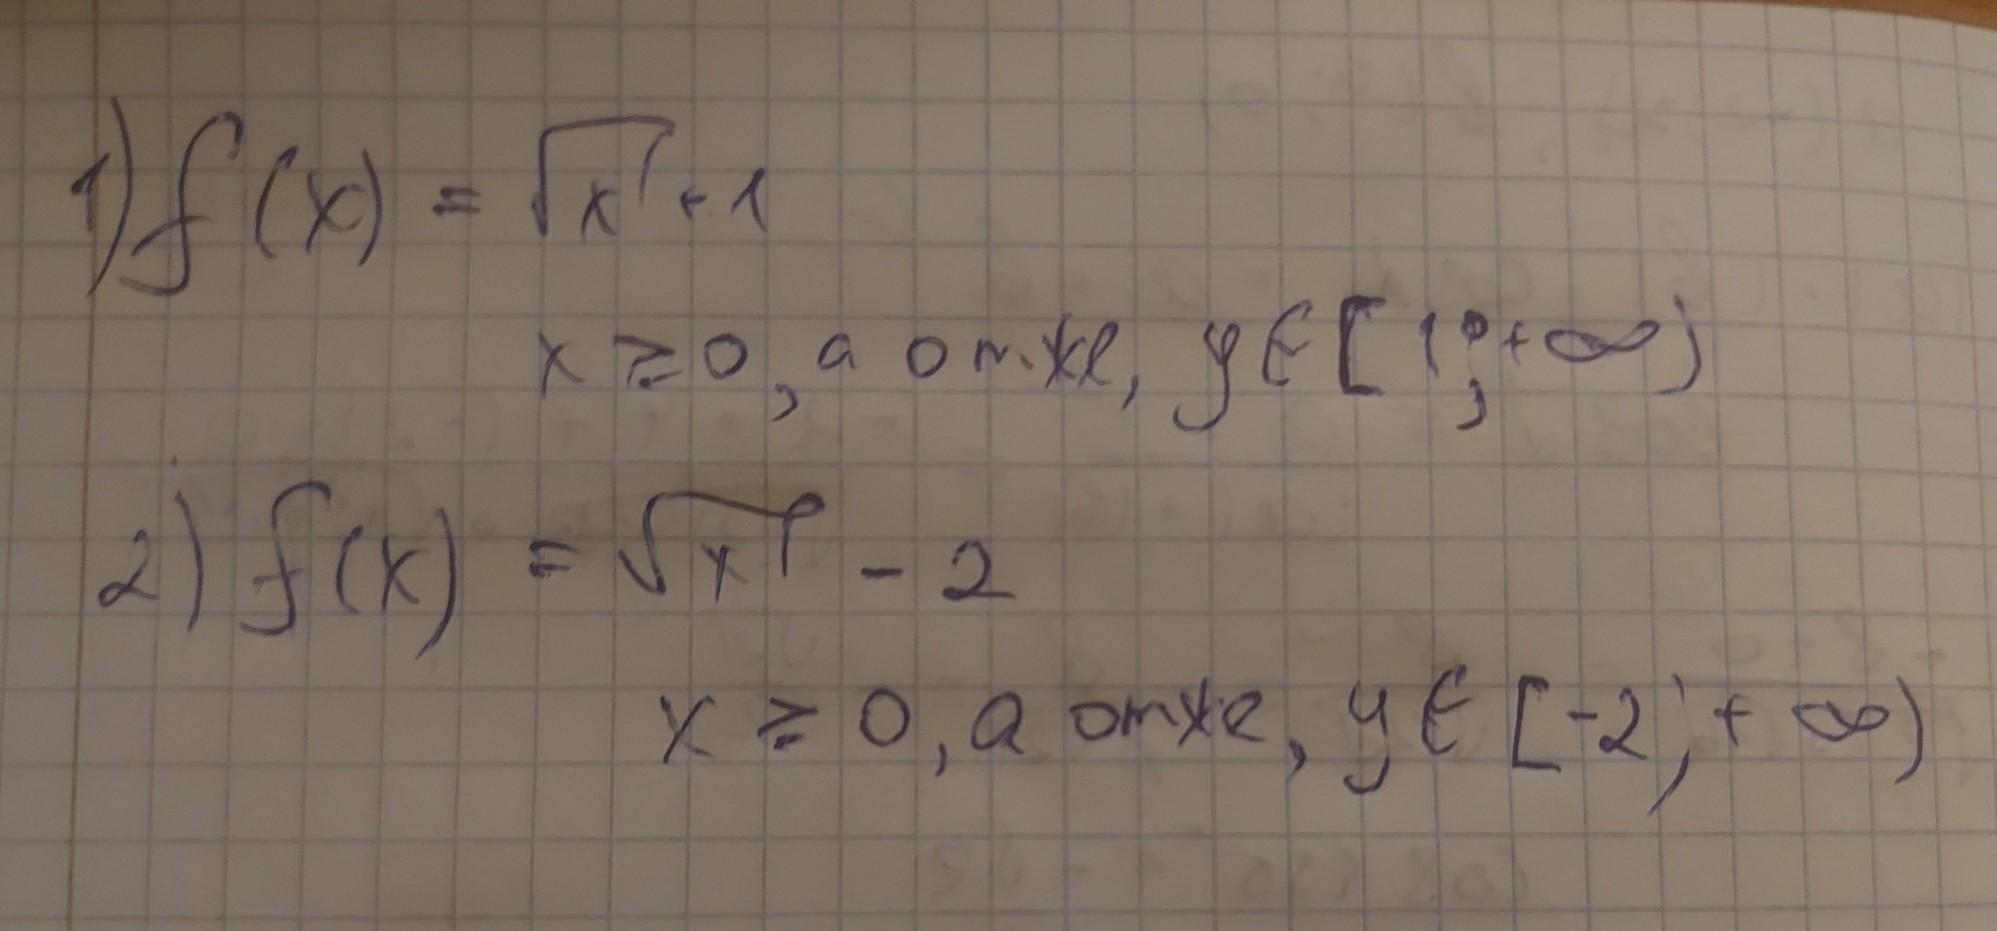 1) f(x) = √x + 1
x ≥ 0, а отже, y ∈ [1; +∞)
2) f(x) = √x - 2
x ≥ 0, а отже, y ∈ [-2; +∞)